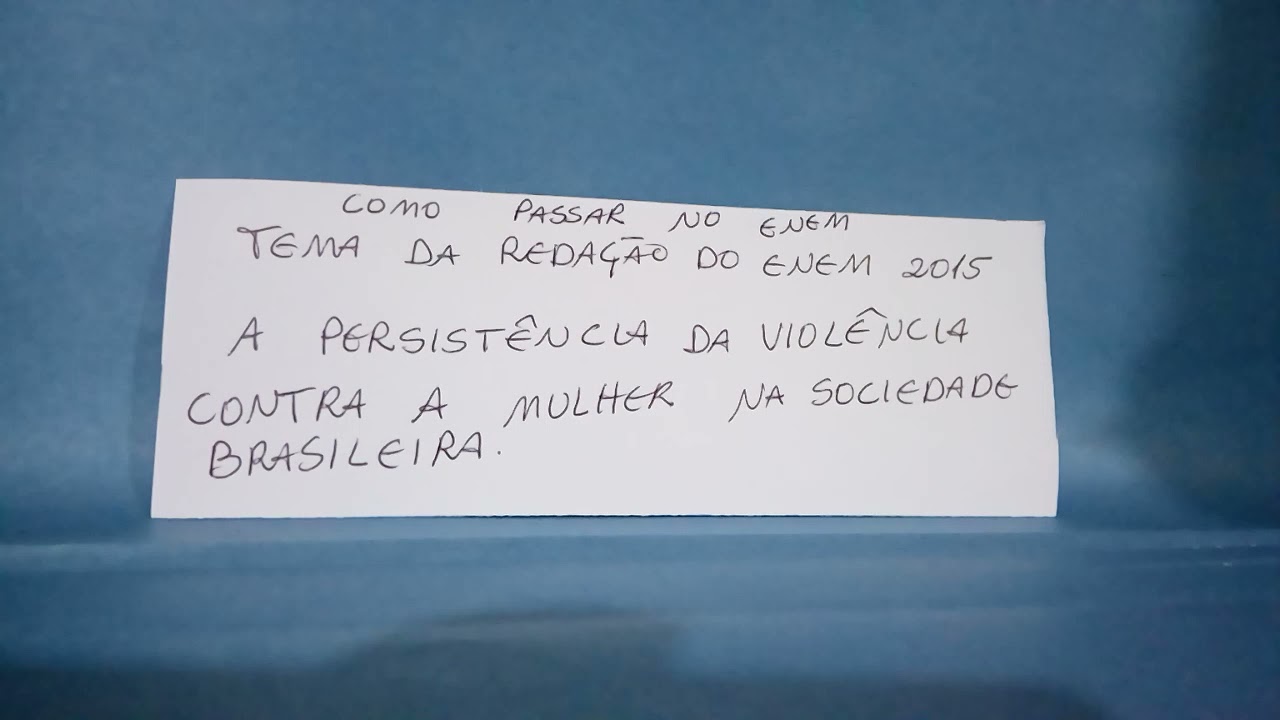 COMO PASSAR NO ENEM
TEMA DA REDAÇÃO DO ENEM 2015
A PERSISTÊNCIA DA VIOLÊNCIA
CONTRA A MULHER NA SOCIEDADE
BRASILEIRA.